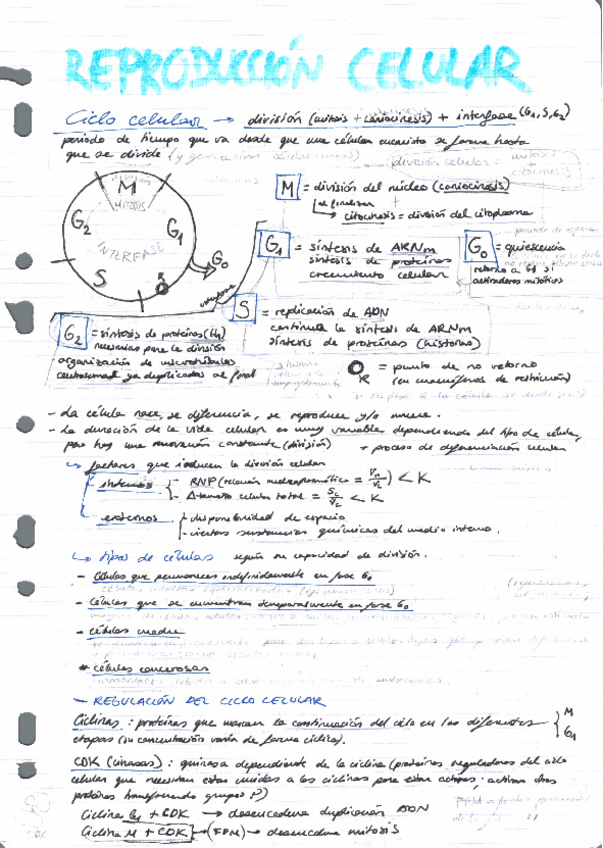 REPRODUCCIÓN CELULAR
Ciclo celular → división (mitosis + cariocinesis) + interfase (G1, S, G2)
periodo de tiempo que va desde que una célula eucariota se forma hasta
que se divide (y generan células nuevas)
división celular =
M
MITOSIS
G2
G1
INTERFASE
S
R
G0
M = división del núcleo (cariocinesis)
al finalizar
citocinesis = división del citoplasma
G1 = síntesis de ARNm
síntesis de proteínas
crecimiento celular
G0 = quiescencia
retorno a G1 si
activadores mitóticos
S = replicación de ADN
continúa la síntesis de ARNm
síntesis de proteínas (histonas)
G2 = síntesis de proteínas
necesarias para la división
organización de microtúbulos
centrosoma ya duplicados al final
R = punto de no retorno
(en mamíferos de restricción)
- La célula nace, se diferencia, se reproduce y/o muere.
- La duración de la vida celular es muy variable dependiendo del tipo de célula,
pero hay una renovación constante (división) + proceso de diferenciación celular
↳ factores que inducen la división celular
internos - RNP (relación nucleoplasmática = Vn/Vc) < K
- Δ tamaño celular total = Sc/Vc < K
externos - disponibilidad de espacio
- ciertas sustancias químicas del medio interno.
↳ tipos de células según su capacidad de división.
- Células que permanecen indefinidamente en fase G0
- Células que se encuentran temporalmente en fase G0
- células madre
* células cancerosas
- REGULACIÓN DEL CICLO CELULAR
Ciclinas: proteínas que marcan la continuación del ciclo en las diferentes
etapas (su concentración varía de forma cíclica).
M
G1
CDK (cinasas): quinasa dependiente de la ciclina (proteínas reguladoras del ciclo
celular que necesitan estar unidas a las ciclinas para estar activas; activan otras
proteínas transfiriendo grupos P)
Ciclina G1 + CDK → desencadena duplicación ADN
Ciclina M + CDK → (FPM) → desencadena mitosis